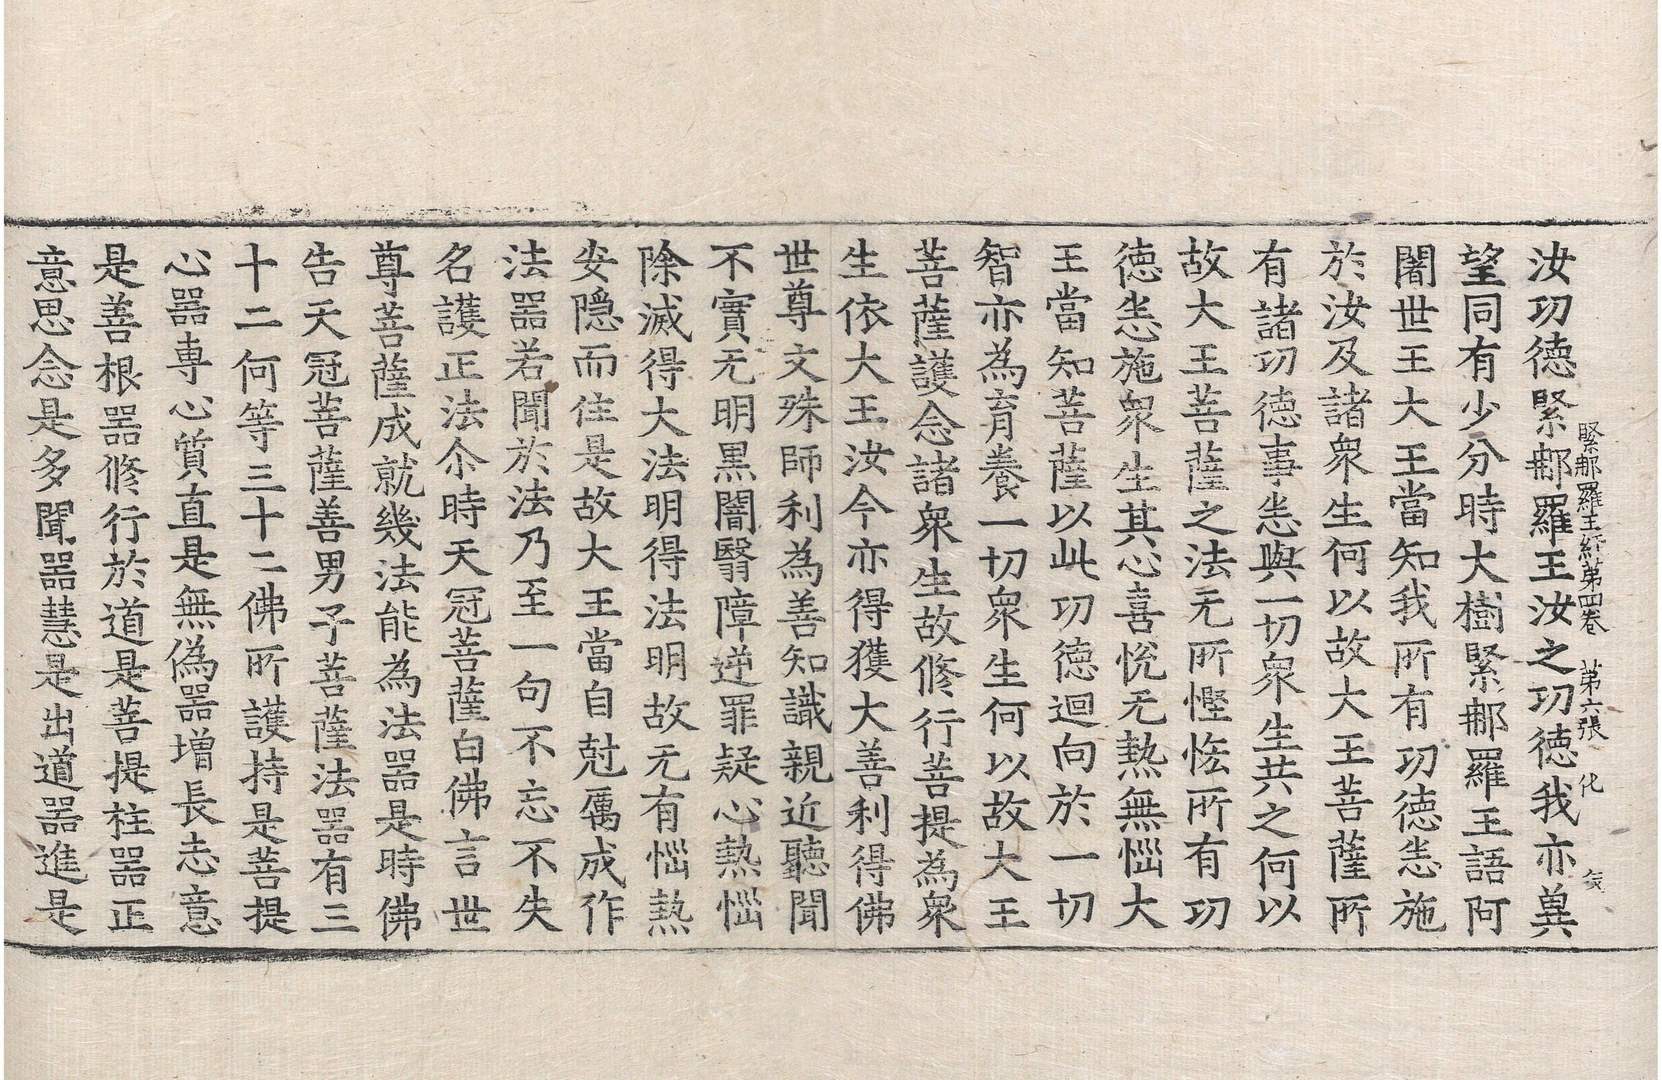 緊那羅王經第四卷 第六張 化
汝功德緊那羅王汝之功德我亦兾
望同有少分時大樹緊那羅王語阿
闍世王大王當知我所有功德悉施
於汝及諸衆生何以故大王菩薩所
有諸功德事悉與一切衆生共之何以
故大王菩薩之法无所慳悋所有功
德悉施衆生其心喜恱无熱無惱大
王當知菩薩以此功德迴向於一切
智亦為育養一切衆生何以故大王
菩薩護念諸衆生故修行菩提為衆
生依大王汝今亦得獲大善利得佛
世尊文殊師利為善知識親近聽聞
不實无明黑闇翳障逆罪疑心熱惱
除滅得大法明得法明故无有惱熱
安隱而住是故大王當自尅厲成作
法器若聞於法乃至一句不忘不失
名護正法尒時天冠菩薩白佛言世
尊菩薩成就幾法能為法器是時佛
告天冠菩薩善男子菩薩法器有三
十二何等三十二佛所護持是菩提
心器専心質直是無偽器增長志意
是善根器修行於道是菩提柱器正
意思念是多聞器慧是出道器進是